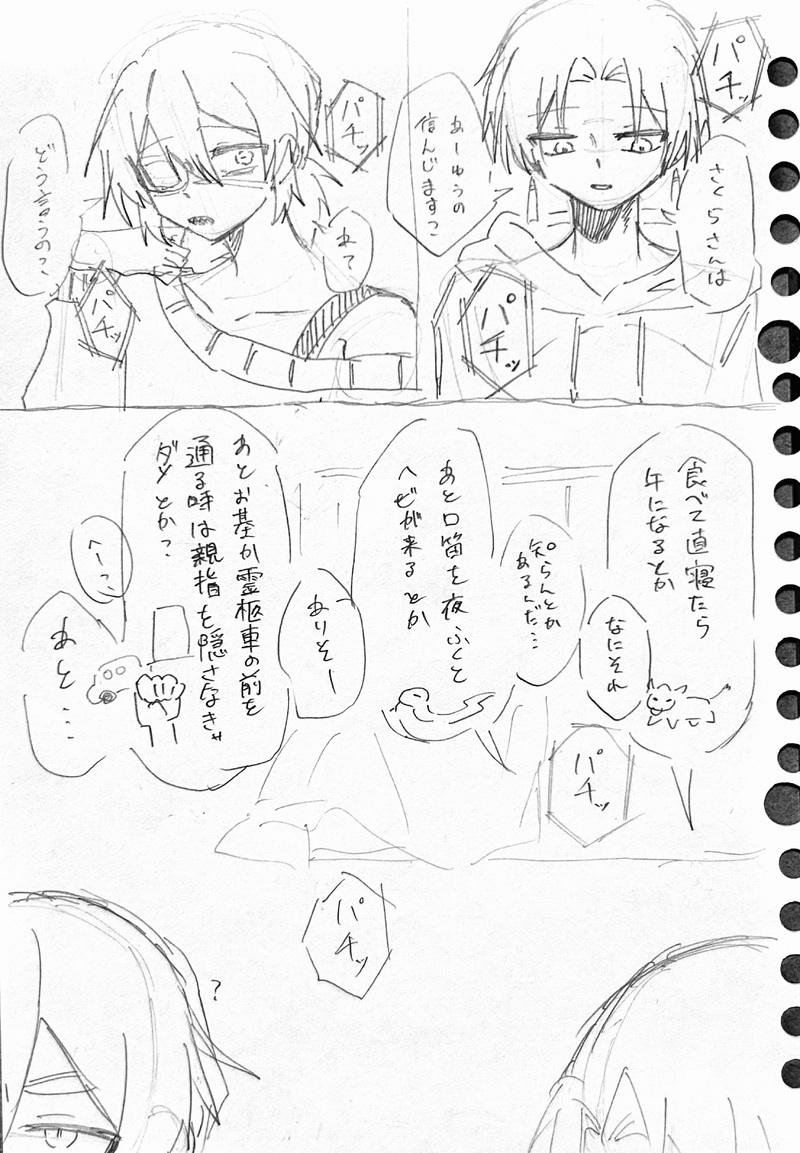 パチッ
さくらさんは
あーゆうの
信じますっ?
パチッ
パチッ
ねて
どう言うのっ?
パチッ
食べて直寝たら
牛になるとか
なにそれ
知らんとか
あるんだ…
パチッ
あと口笛を夜ふくと
ヘビが来るとか
ありそー
あとお墓か霊柩車の前を
通る時は親指を隠さなきゃ
ダメとか?
へーっ
あと…
パチッ
?